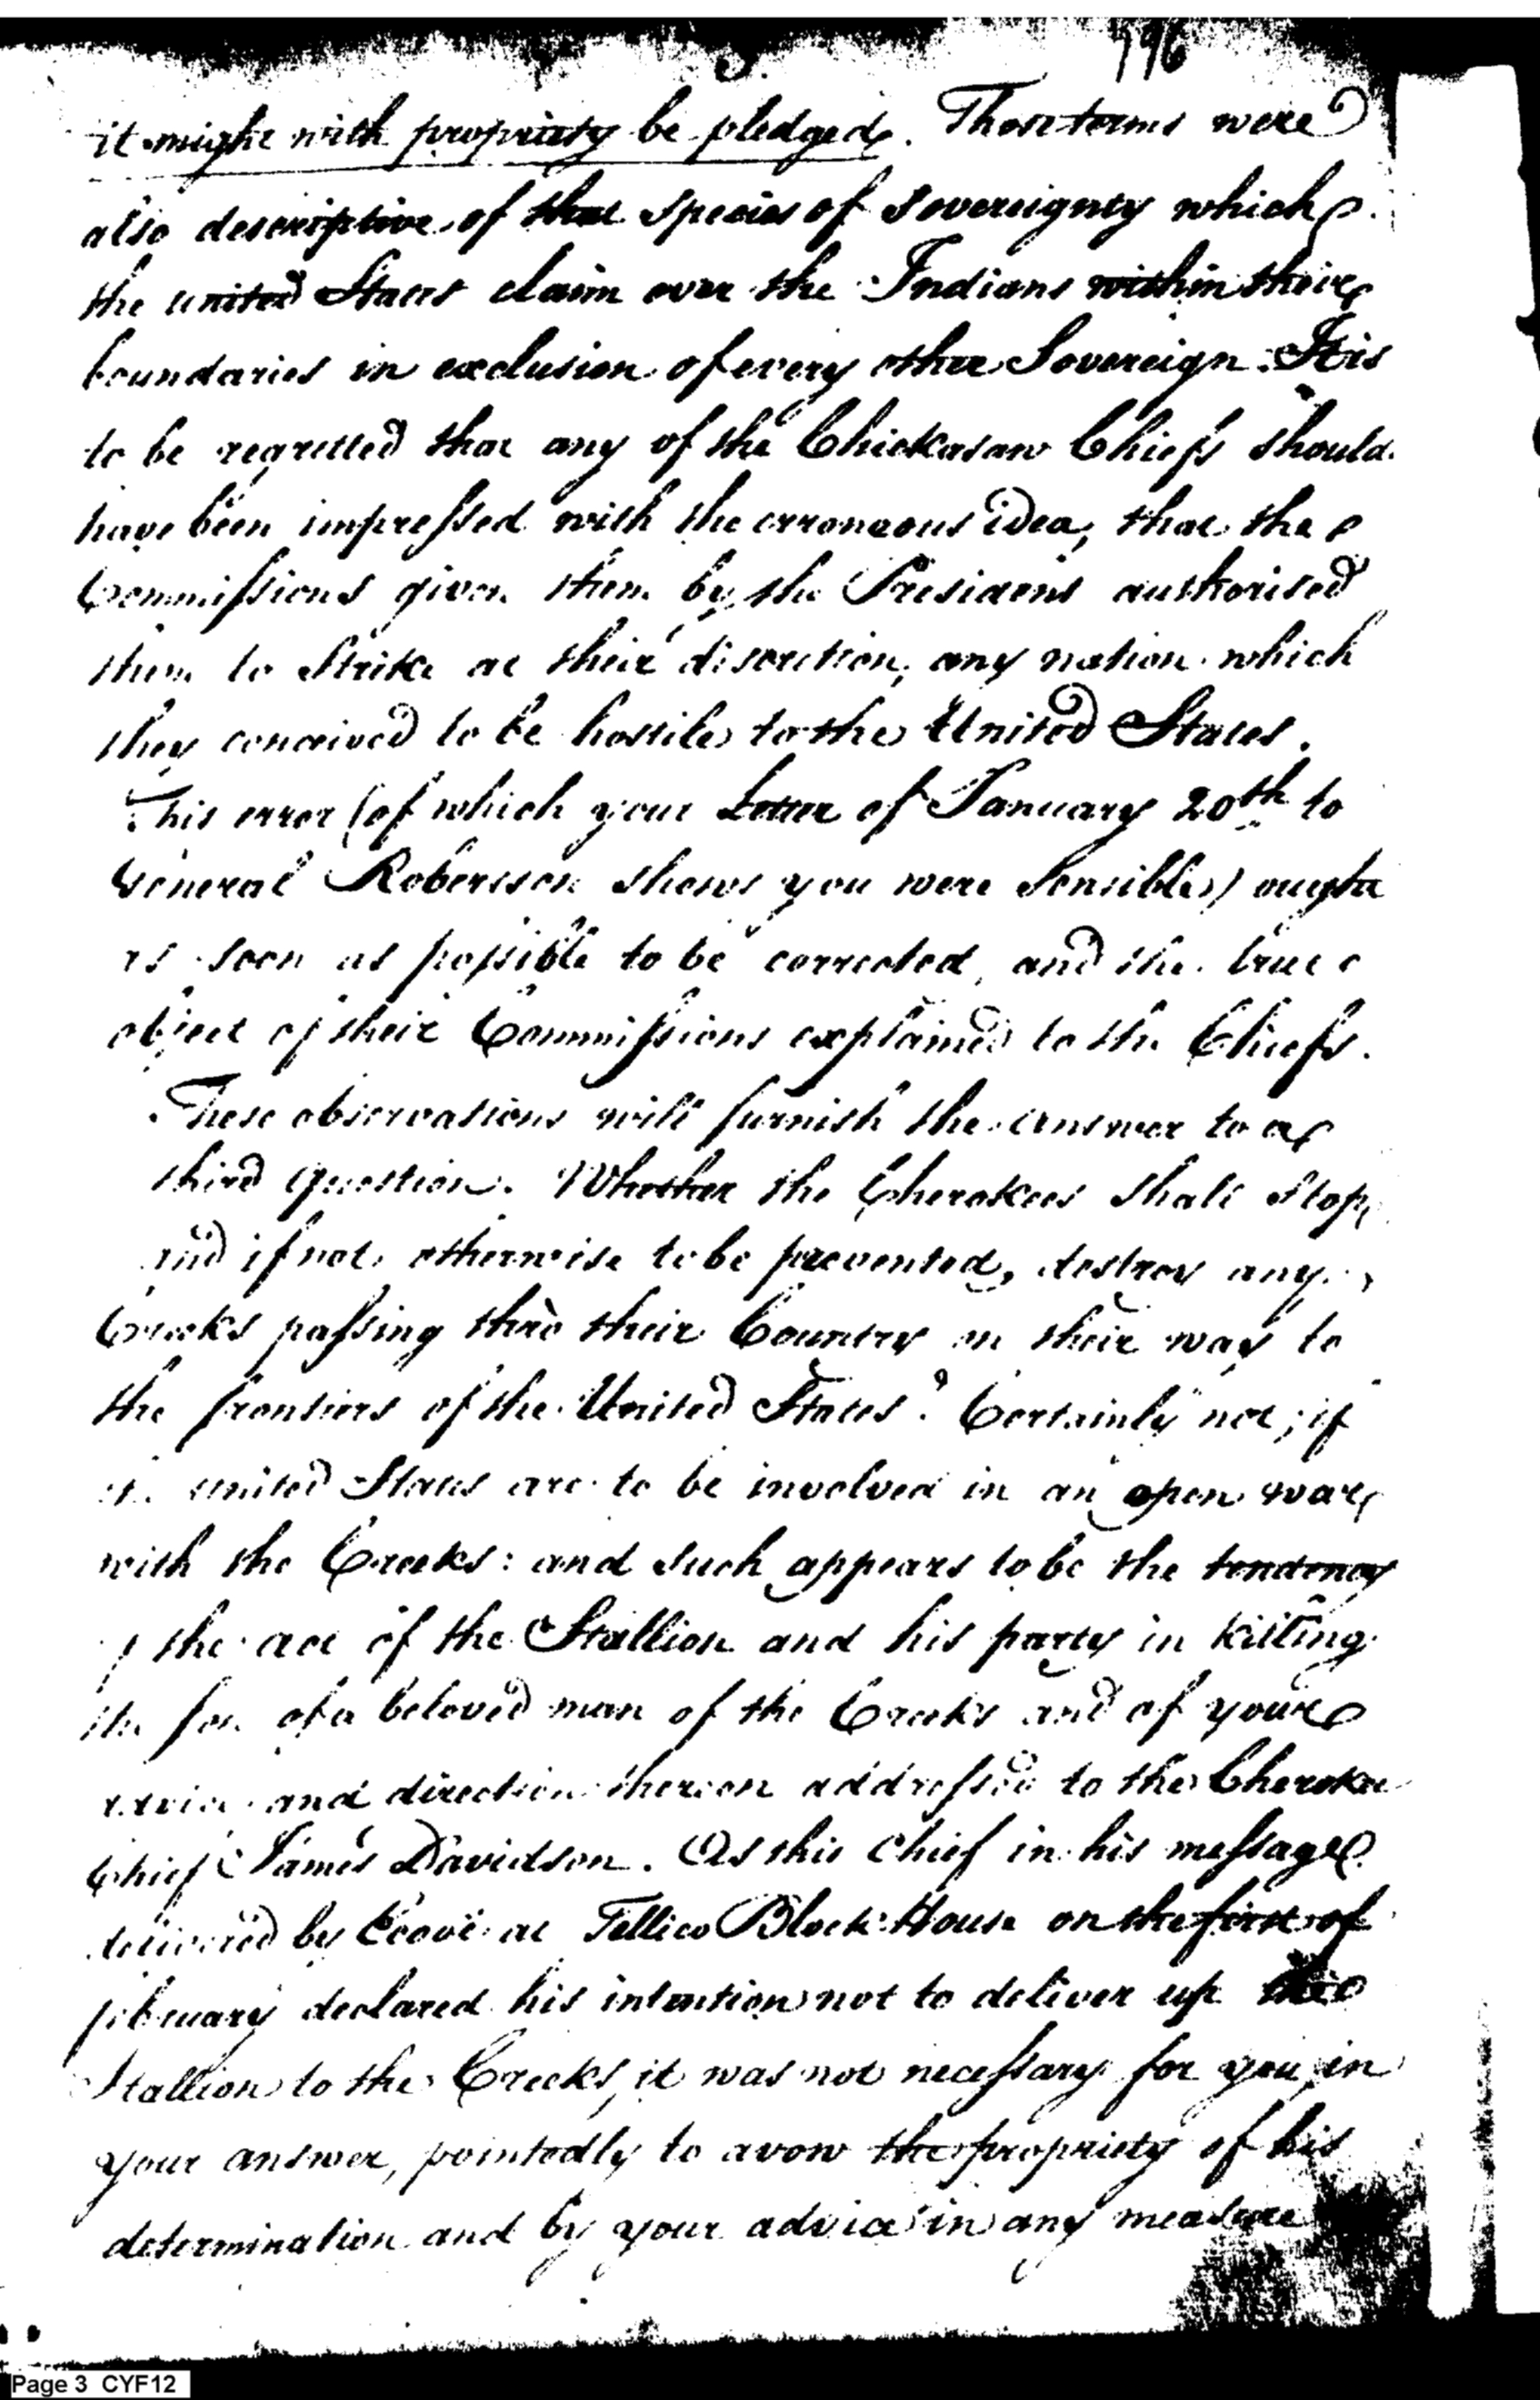 3.
796
it might with propriety be pledged. Those terms were
also descriptive of that species of sovereignty which
the united States claim over the Indians within their
boundaries in exclusion of every other Sovereign. It is
to be regretted that any of the Chickasaw Chiefs should
have been impressed with the erroneous idea, that the
Commissions given them by the President authorised
them to Strike at their discretion, any nation which
they conceived to be hostile to the United States.
This error (of which your Letter of January 20th to
General Robertson shows you were Sensible) ought
as soon as possible to be corrected, and the true
object of their Commissions explained to the Chiefs.
These observations will furnish the answer to a
third question. Whether the Cherokees shall stop,
and if not otherwise to be prevented, destroy any
Creeks passing thro their Country on their way to
the frontiers of the United States? Certainly not; if
the united States are to be involved in an open war
with the Creeks: and such appears to be the tendency
of the act of the Stallion and his party in killing
the son of a beloved man of the Creeks and of your
advice and direction thereon addressed to the Cherokee
Chief James Davidson. As this Chief in his message
delivered by Ecooi at Tellico Block House on the first of
february declared his intention not to deliver up the
Stallion to the Creeks, it was not necessary for you in
your answer, pointedly to avow the propriety of his
determination and by your advice in any measure
Page 3 CYF12